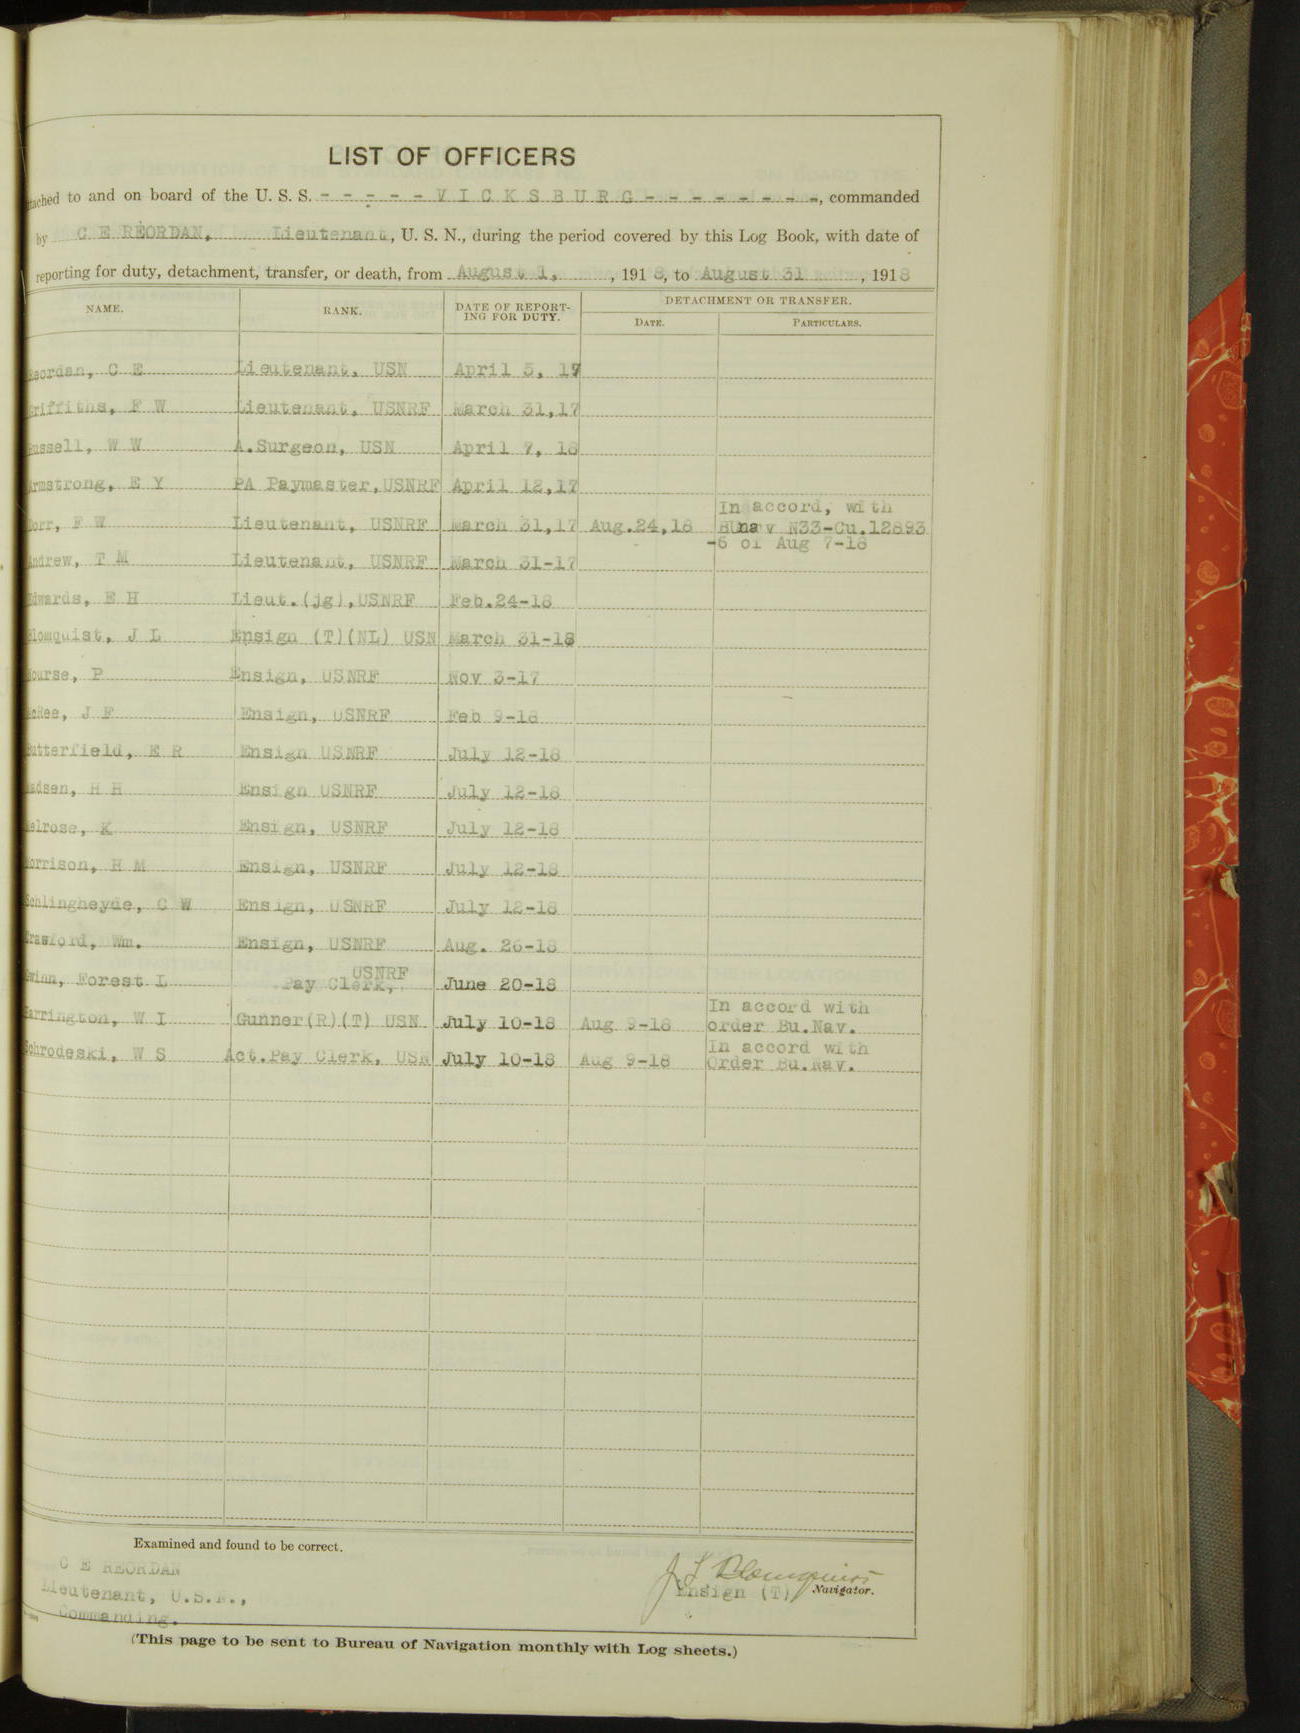 LIST OF OFFICERS
tached to and on board of the U. S. S. - - - - - V I C K S B U R G - - - - - - - -, commanded
by C E REORDAN, Lieutenant, U. S. N., during the period covered by this Log Book, with date of
reporting for duty, detachment, transfer, or death, from August 1, , 1918, to August 31 , 1918
NAME. RANK. DATE OF REPORT-
ING FOR DUTY. DETACHMENT OR TRANSFER.
DATE. PARTICULARS.
Reordan, C E Lieutenant, USN April 5, 17
Griffiths, F W Lieutenant, USNRF March 31,17
Russell, W W A.Surgeon, USN April 7, 18
Armstrong, E Y PA Paymaster,USNRF April 12,17
In accord, with
Dorr, F W Lieutenant, USNRF March 31,17 Aug.24,18 BUnav N33-Cu.12893
-6 of Aug 7-18
Andrew, T M Lieutenant, USNRF March 31-17
Edwards, E H Lieut.(jg),USNRF Feb.24-18
Blomquist, J L Ensign (T)(NL) USN March 31-18
Nourse, P Ensign, USNRF Nov 3-17
McRee, J F Ensign, USNRF Feb 9-18
Butterfield, E R Ensign USNRF July 12-18
Madsen, H H Ensign USNRF July 12-18
Melrose, K Ensign, USNRF July 12-18
Morrison, H M Ensign, USNRF July 12-18
Schlingheyde, C W Ensign, USNRF July 12-18
Crawford, Wm. Ensign, USNRF Aug. 26-18
Gwinn, Forest L Pay Clerk, USNRF June 20-18
In accord with
Harrington, W I Gunner(R)(T) USN July 10-18 Aug 9-18 order Bu.Nav.
In accord with
Schrodeski, W S Act.Pay Clerk, USN July 10-18 Aug 9-18 Order Bu.Nav.
Examined and found to be correct.
C E REORDAN
Lieutenant, U.S.N.,
Commanding.
J L Blomquist
Ensign (T) Navigator.
(This page to be sent to Bureau of Navigation monthly with Log sheets.)